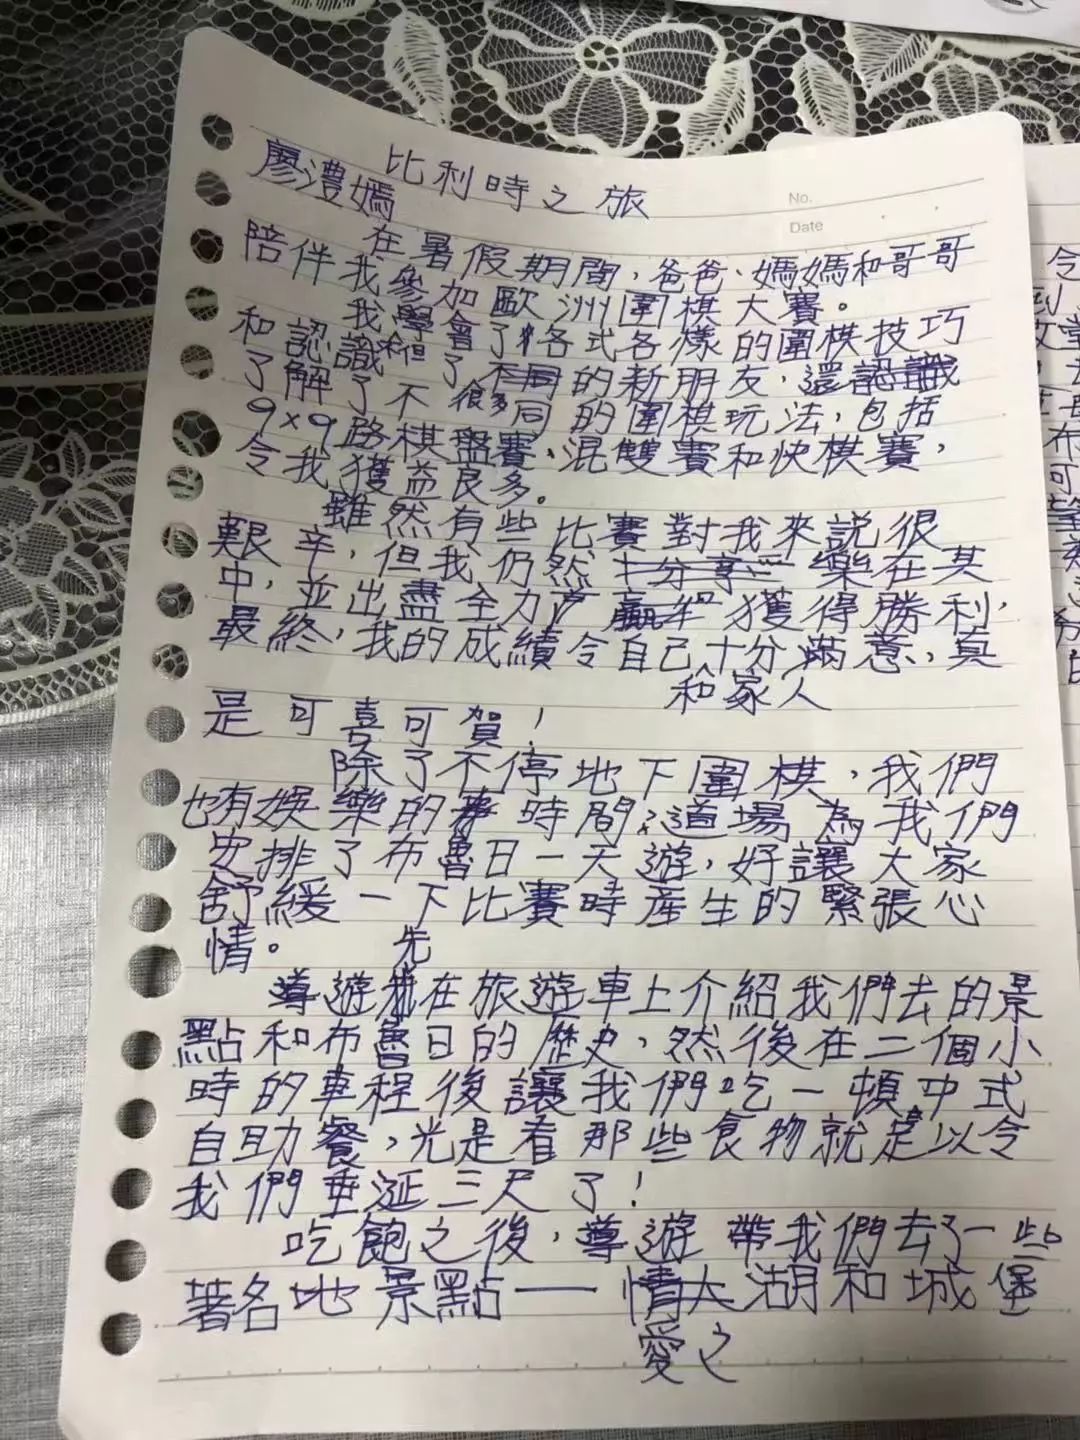 比利時之旅
No.
Date
廖澧嫣
在暑假期間，爸爸、媽媽和哥哥
陪伴我參加歐洲圍棋大賽。
我學會了各式各樣的圍棋技巧
和認識了不同的新朋友，還認識
很多
了解了不同的圍棋玩法，包括
9×9路棋盤賽、混雙賽和快棋賽，
令我獲益良多。
雖然有些比賽對我來説很
艱辛，但我仍然十分享受樂在其
中，並出盡全力贏獲得勝利，
最終，我的成績令自己十分滿意，真
和家人
是可喜可賀！
除了不停地下圍棋，我們
也有娛樂的時間，道場為我們
安排了布魯日一天遊，好讓大家
舒緩一下比賽時產生的緊張心
情。
先
導遊就在旅遊車上介紹我們去的景
點和布魯日的歷史，然後在二個小
時的車程後讓我們吃一頓中式
自助餐，光是看那些食物就足以令
我們垂涎三尺了！
吃飽之後，導遊帶我們去了一些
著名地景點——情人湖和城堡
愛之
令